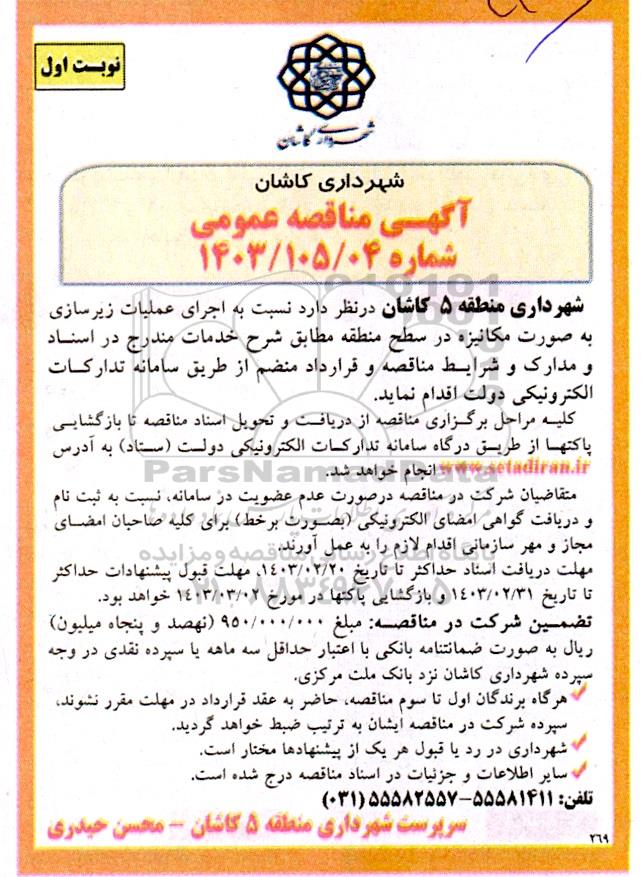 نوبت اول
شهرداری کاشان
شهرداری کاشان
آگهی مناقصه عمومی
شماره ۱۴۰۳/۱۰۵/۰۴
شهرداری منطقه ۵ کاشان درنظر دارد نسبت به اجرای عملیات زیرسازی
به صورت مکانیزه در سطح منطقه مطابق شرح خدمات مندرج در اسناد
و مدارک و شرایط مناقصه و قرارداد منضم از طریق سامانه تدارکات
الکترونیکی دولت اقدام نماید.
کلیه مراحل برگزاری مناقصه از دریافت و تحویل اسناد مناقصه تا بازگشایی
پاکتها از طریق درگاه سامانه تدارکات الکترونیکی دولت (ستاد) به آدرس
www.setadiran.ir انجام خواهد شد.
متقاضیان شرکت در مناقصه درصورت عدم عضویت در سامانه، نسبت به ثبت نام
و دریافت گواهی امضای الکترونیکی (بصورت برخط) برای کلیه صاحبان امضای
مجاز و مهر سازمانی اقدام لازم را به عمل آورند.
مهلت دریافت اسناد حداکثر تا تاریخ ۱۴۰۳/۰۲/۲۰، مهلت قبول پیشنهادات حداکثر
تا تاریخ ۱۴۰۳/۰۲/۳۱ و بازگشایی پاکتها در مورخ ۱۴۰۳/۰۳/۰۲ خواهد بود.
تضمین شرکت در مناقصه: مبلغ ۹۵۰/۰۰۰/۰۰۰ (نهصد و پنجاه میلیون)
ریال به صورت ضمانتنامه بانکی با اعتبار حداقل سه ماهه یا سپرده نقدی در وجه
سپرده شهرداری کاشان نزد بانک ملت مرکزی.
هرگاه برندگان اول تا سوم مناقصه، حاضر به عقد قرارداد در مهلت مقرر نشوند،
سپرده شرکت در مناقصه ایشان به ترتیب ضبط خواهد گردید.
شهرداری در رد یا قبول هر یک از پیشنهادها مختار است.
سایر اطلاعات و جزئیات در اسناد مناقصه درج شده است.
تلفن: ۵۵۵۸۱۴۱۱-۵۵۵۸۲۵۵۷ (۰۳۱)
سرپرست شهرداری منطقه ۵ کاشان - محسن حیدری
۲۶۹
ParsNamadData
پایگاه اطلاع رسانی مناقصه و مزایده
۰۲۱-۸۸۳۴۹۶۷۰-۵